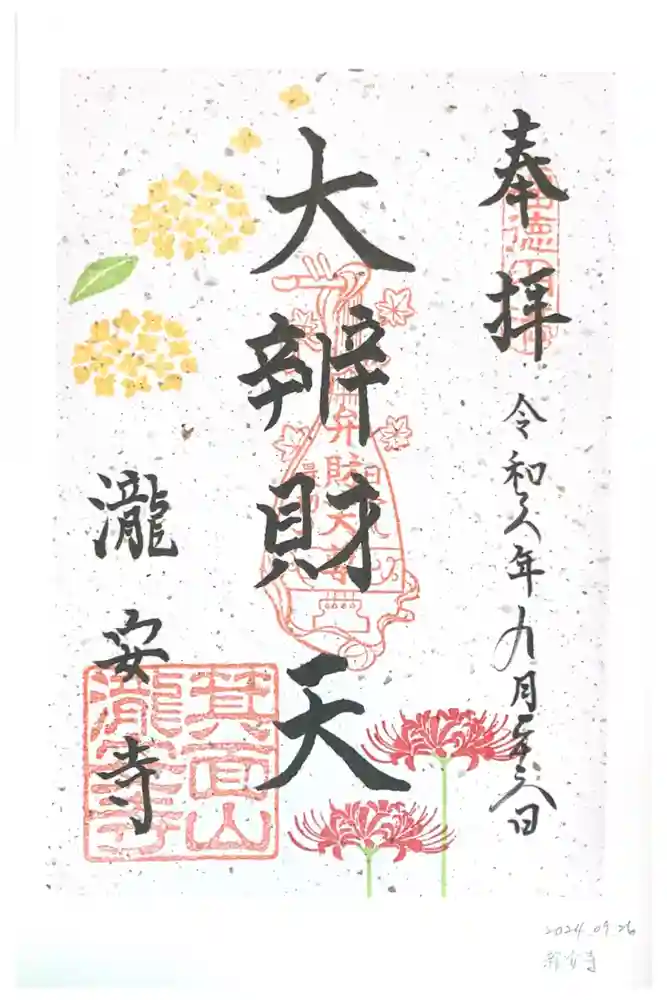 奉拝
令和六年九月二十六日
大辨財天
瀧安寺
弁財天
箕面山
瀧安寺
2024.09.26